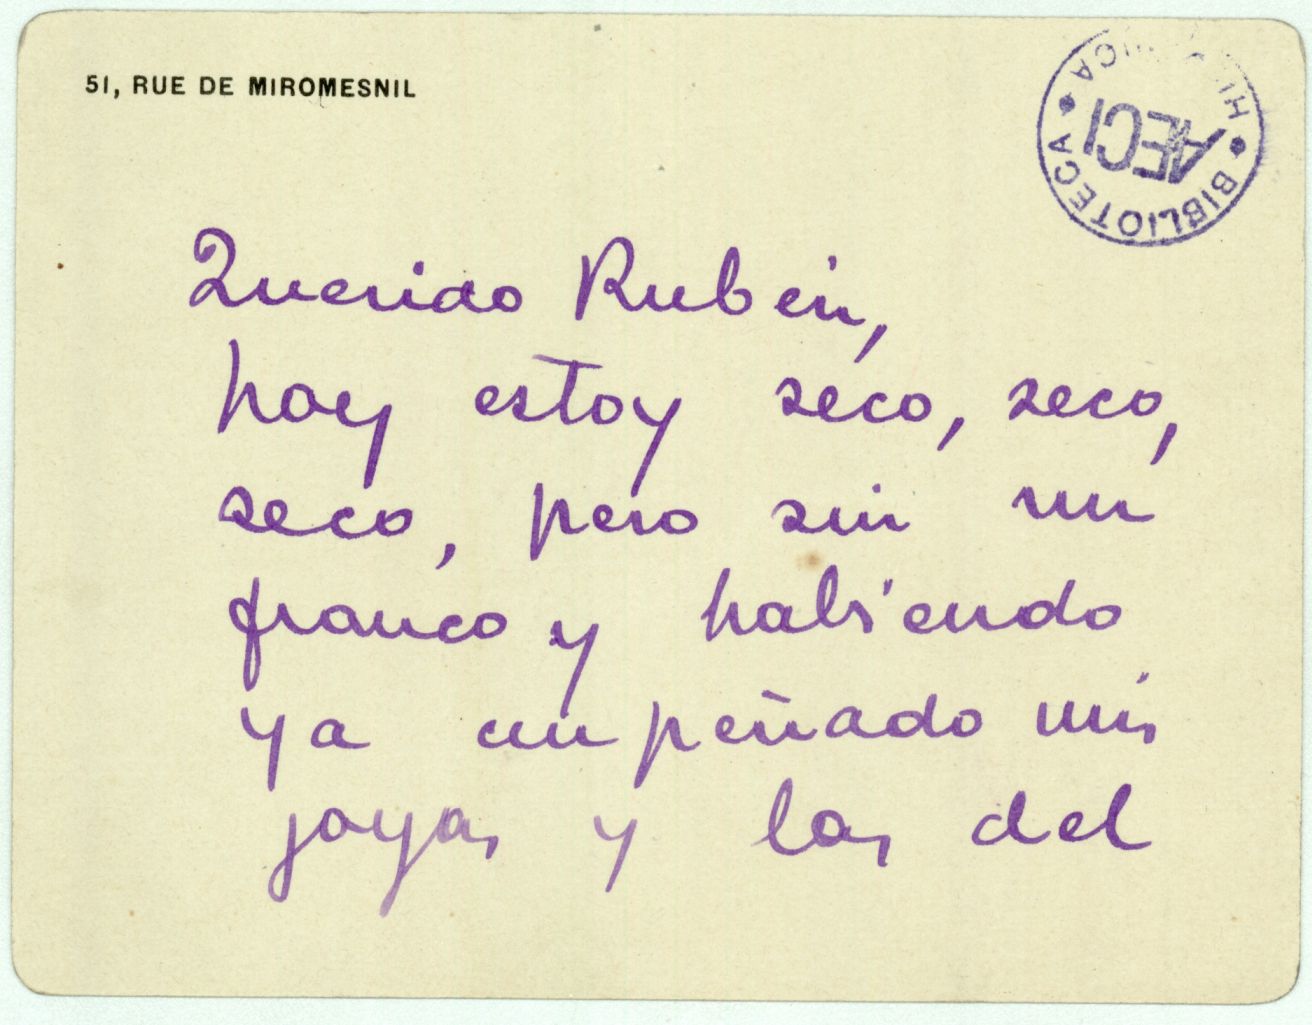 51, RUE DE MIROMESNIL
BIBLIOTECA
AECI
Querido Rubén,
hoy estoy seco, seco,
seco, pero sin un
franco y habiendo
ya empeñado mis
joyas y las del